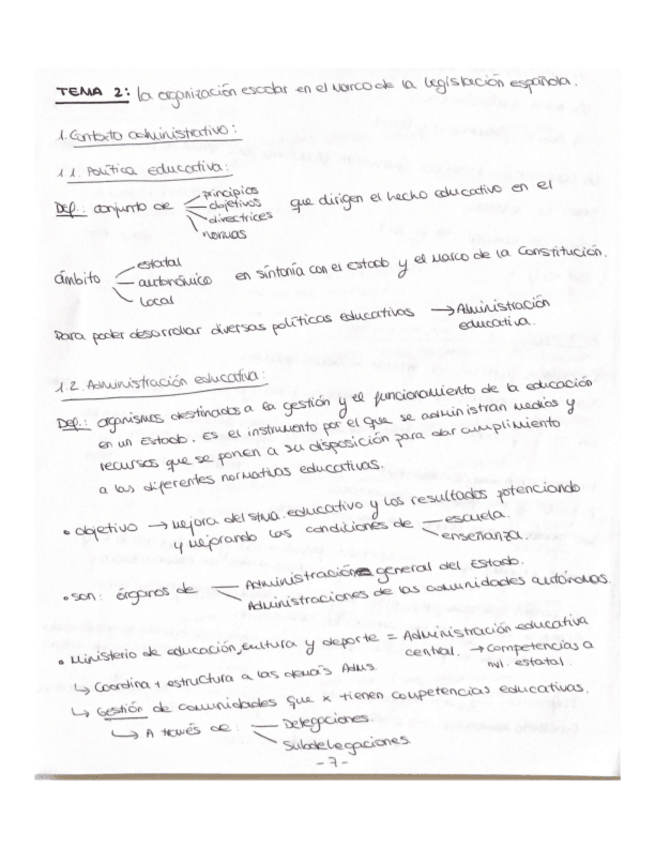 TEMA 2: La organización escolar en el marco de la legislación española.
1. Contexto administrativo:
1.1. Política educativa:
Def.: conjunto de
principios
objetivos
directrices
normas
que dirigen el hecho educativo en el
ámbito
estatal
autonómico
local
en sintonía con el estado y el marco de la Constitución.
Para poder desarrollar diversas políticas educativas → Administración
educativa.
1.2. Administración educativa:
Def.: organismos destinados a la gestión y el funcionamiento de la educación
en un Estado. Es el instrumento por el que se administran medios y
recursos que se ponen a su disposición para dar cumplimiento
a las diferentes normativas educativas.
• objetivo → mejora del stma. educativo y los resultados potenciando
y mejorando las condiciones de
escuela.
enseñanza.
• son: órganos de
Administración general del Estado.
Administraciones de las comunidades autónomas.
• Ministerio de educación, cultura y deporte = Administración educativa
central. → competencias a
nvl. estatal.
↳ Coordina + estructura a las demás Adms.
↳ Gestión de comunidades que x tienen competencias educativas.
↳ A través de:
Delegaciones.
Subdelegaciones
- 7 -